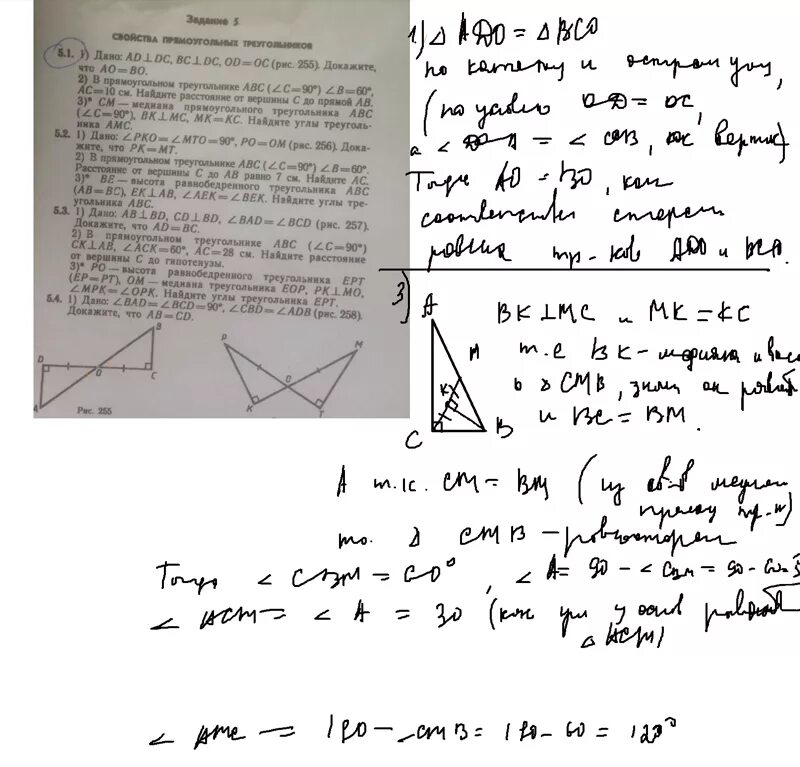 Задание 5
СВОЙСТВА ПРЯМОУГОЛЬНЫХ ТРЕУГОЛЬНИКОВ
5.1. 1) Дано: AD⊥DC, BC⊥DC, OD=OC (рис. 255). Докажите,
что AO=BO.
2) В прямоугольном треугольнике ABC (∠C=90°) ∠B=60°,
AC=10 см. Найдите расстояние от вершины C до прямой AB.
3)* CM — медиана прямоугольного треугольника ABC
(∠C=90°), BK⊥MC, MK=KC. Найдите углы треуголь-
ника AMC.
5.2. 1) Дано: ∠PKO=∠MTO=90°, PO=OM (рис. 256). Дока-
жите, что PK=MT.
2) В прямоугольном треугольнике ABC (∠C=90°) ∠B=60°.
Расстояние от вершины C до AB равно 7 см. Найдите AC.
3)* BE — высота равнобедренного треугольника ABC
(AB=BC), EK⊥AB, ∠AEK=∠BEK. Найдите углы тре-
угольника ABC.
5.3. 1) Дано: AB⊥BD, CD⊥BD, ∠BAD=∠BCD (рис. 257).
Докажите, что AD=BC.
2) В прямоугольном треугольнике ABC (∠C=90°)
CK⊥AB, ∠ACK=60°, AC=28 см. Найдите расстояние
от вершины C до гипотенузы.
3)* PO — высота равнобедренного треугольника EPT
(EP=PT), OM — медиана треугольника EOP, PK⊥MO,
∠MPK=∠OPK. Найдите углы треугольника EPT.
5.4. 1) Дано: ∠BAD=∠BCD=90°, ∠CBD=∠ADB (рис. 258).
Докажите, что AB=CD.
B
D
O
C
A
Рис. 255
P
M
O
K
T
1) △ ADO = △ BCO
по катету и острому углу,
(по условию OD = OC,
а ∠ = ∠ COB, как вертик)
Тогда AO = BO, как
соответственные стороны
равных тр-ков ADO и BCO.
3)
A
M
K
C
B
BK⊥MC и MK = KC
т.е BK – медиана и высо
в △ CMB, значит он равноб
и BC = BM.
А т.к. CM = BM (из св-в медиан
прямоуг тр-к)
то △ CMB – равносторон
Тогда ∠ CBM = 60°, ∠ A = 90 - ∠ CBM = 90 - 60 = 3
∠ ACM = ∠ A = 30 (как угл у основ равноб
△ ACM)
∠ AMC = 180 - ∠CMB = 180 - 60 = 120°